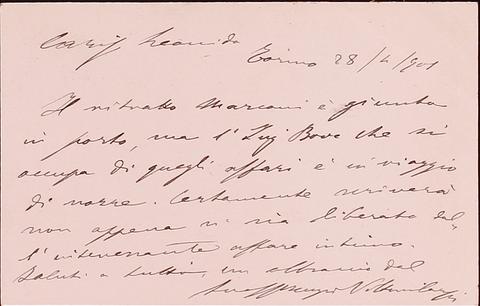 Leonida
Torino 28/4/901
Il ritratto Marconi è giunto
in porto, ma l'Ing Bove che si
occupa di quegli affari è in viaggio
di nozze. Certamente scriverà
non appena si sia liberato dal
l'interessante affare intimo.
Saluti a tutti, un abbraccio dal